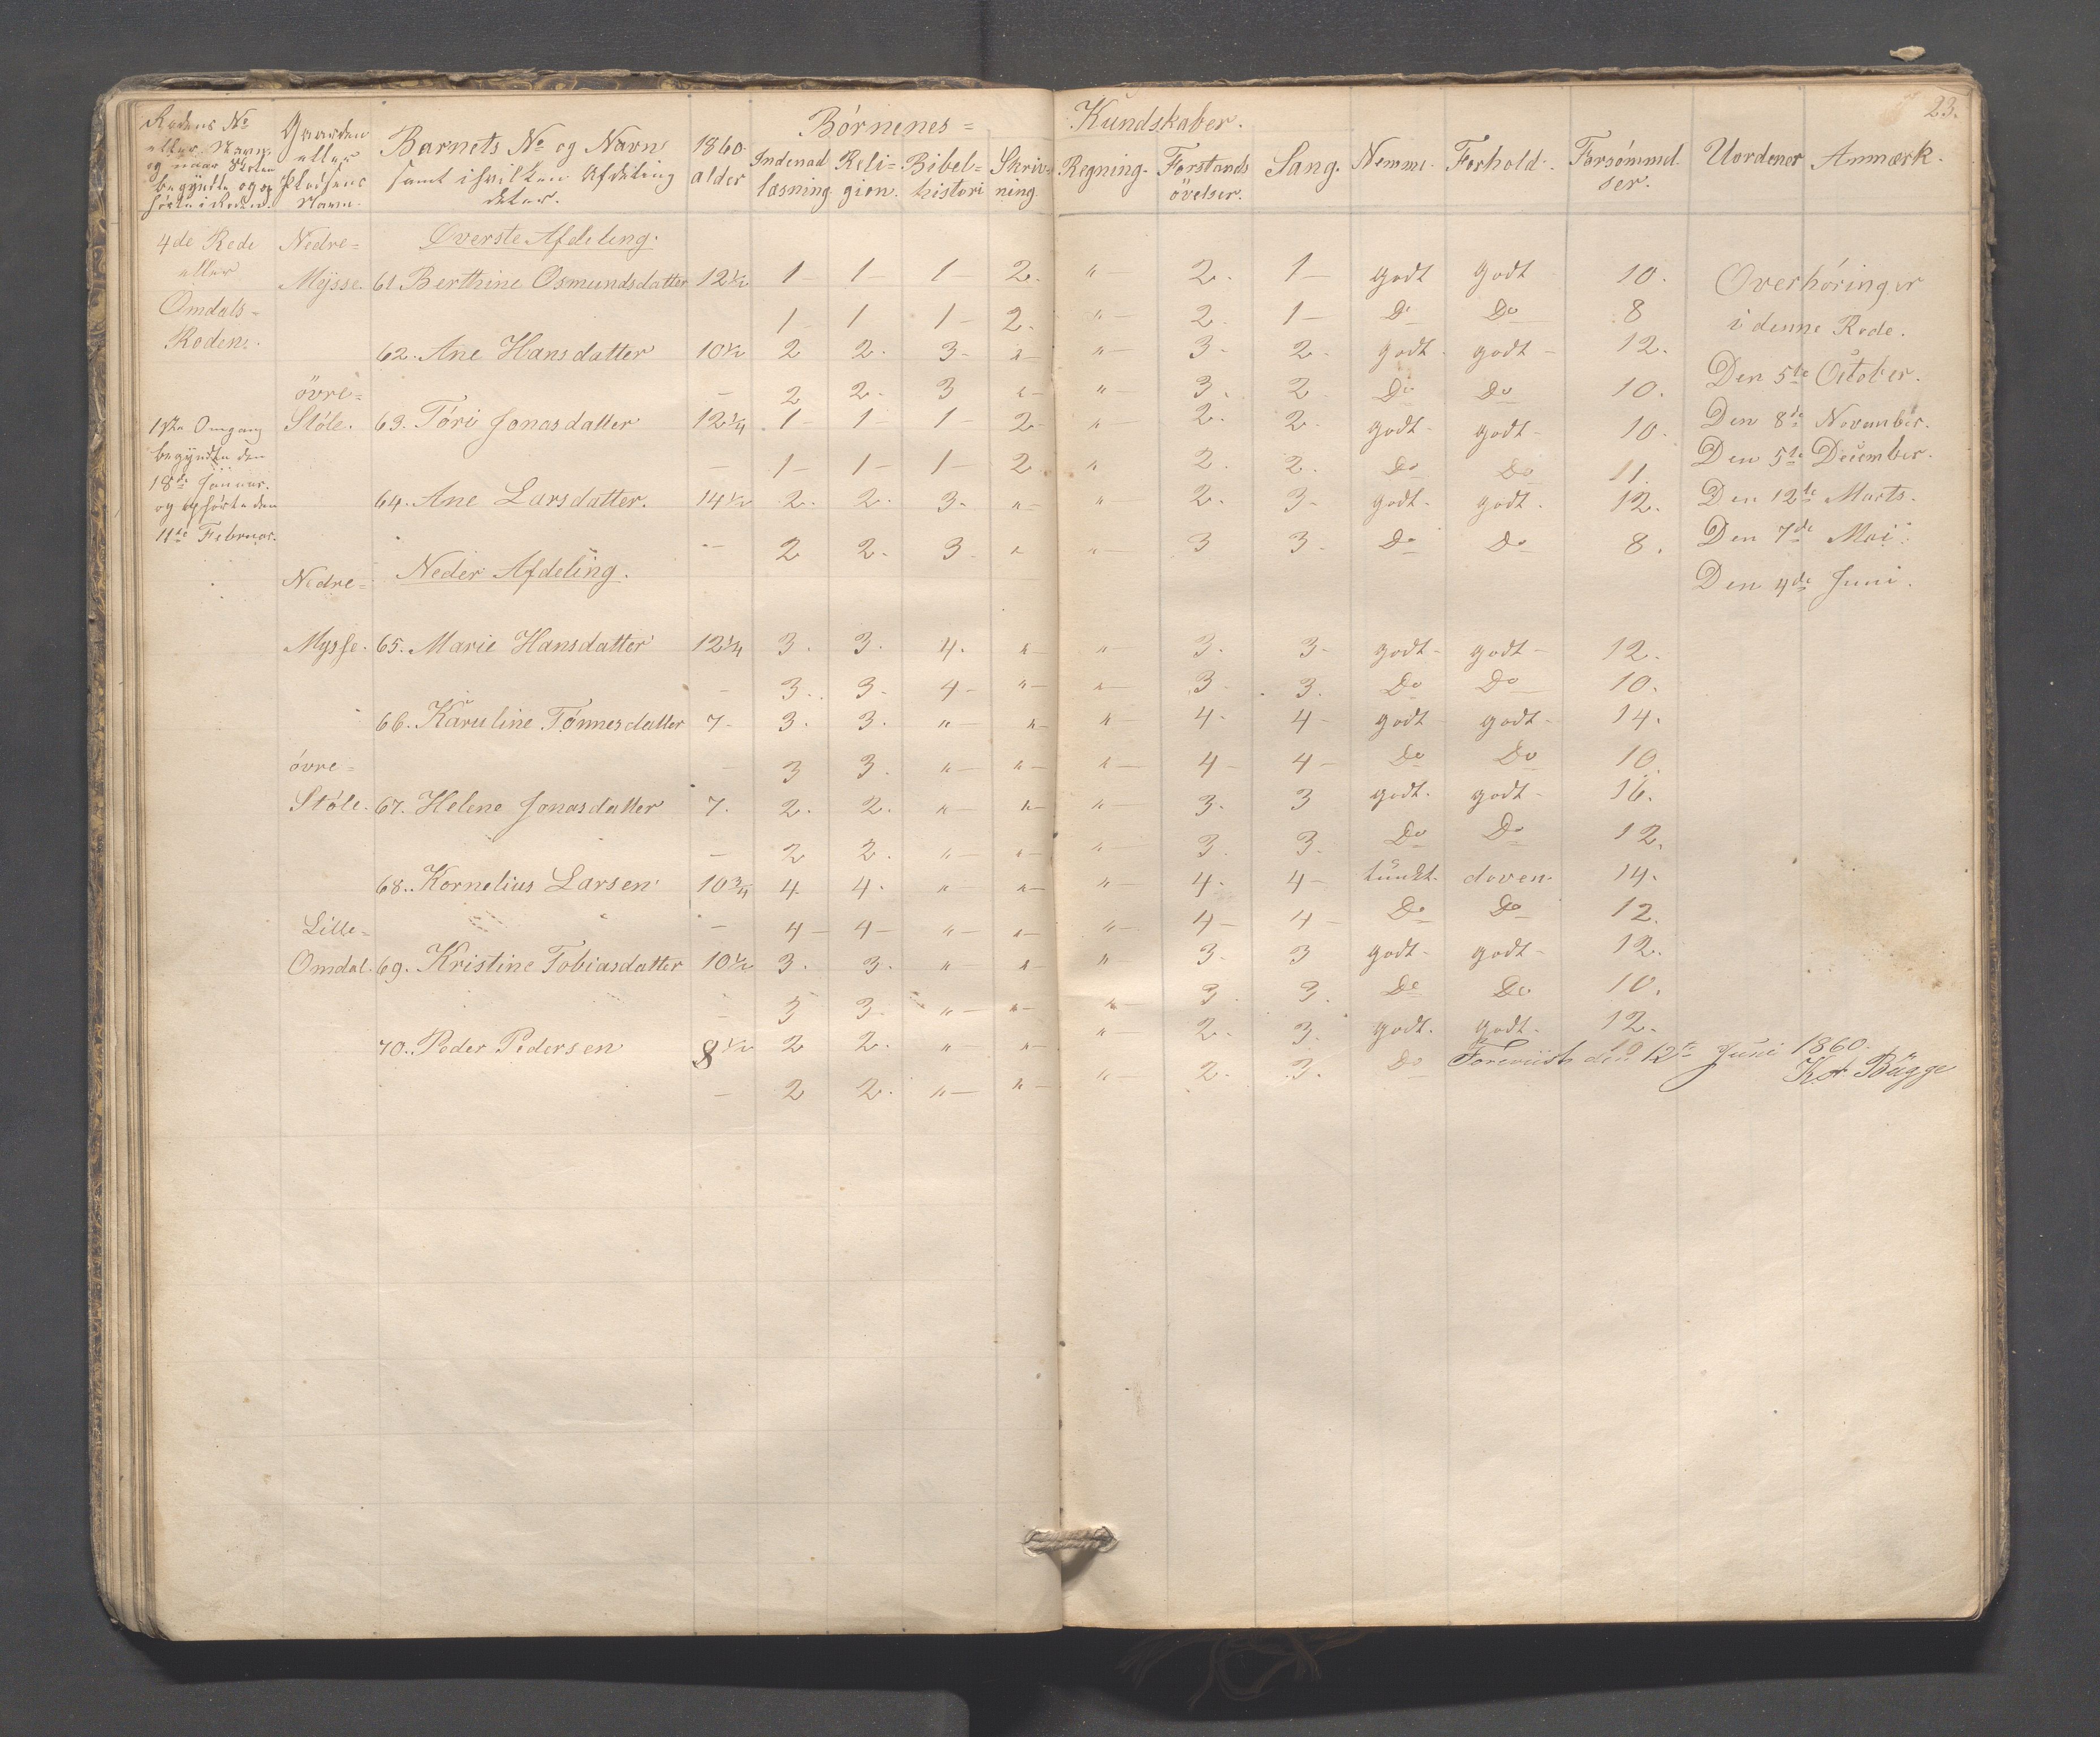 23.
Børnenes = Kundskaber.
Rodens No eller Navn og naar Skolen begyndte og ophørte i Roden.
Gaarden eller Pladsens Navn.
Barnets No og Navn samt i hvilken Afdeling deter.
1860. alder
Indenad læsning
Reli= gion.
Bibel= histori
Skriv= ning.
Regning.
Forstands övelser.
Sang.
Nemme.
Forhold.
Forsømmel ser.
Uordener
Anmærk.
4de Rode Nedre= Øverste Afdeling.
eller Mysse. 61. Berthine Osmundsdatter 12½ 1 1 1 2. " 2. 1 godt godt 10. Overhøringer
Omdals= 1 1 1 2. " 2 1 Do Do 8 i denne Rode.
Rodene. 62. Ane Hansdatter 10½ 2 2. 3 " " 3 2 godt godt 12.
övre= 2 2. 3 " " 3. 2 Do Do 10. Den 5te October.
1ste Omgang Støle. 63. Tóri Jonasdatter 12¼ 1 1 1 2 " 2. 2. godt godt 10. Den 8de November.
begyndte den 1 1 1 2 " 2. 2. Do Do 11. Den 5te December.
18de Januar. 64. Ane Larsdatter. 14½ 2. 2. 3. " " 2. 3. godt godt. 12. Den 12te Marts.
og ophørte den
11te Februar. 2 2. 3. " " 3 3. Do Do 8. Den 7de Mai.
Nedre= Neder Afdeling. Den 4de Juni.
Mysse. 65. Marie Hansdatter 12¼ 3. 3. 4. " " 3. 3 godt godt 12.
3. 3. 4 " " 3 3. Do Do 10.
66. Karuline Tønnesdatter 7 3. 3. " " " 4. 4 godt godt 14.
óvre= 3 3. " " " 4 4 Do Do 10.
Støle. 67. Helene Jonasdatter 7. 2. 2. " " " 3. 3 godt. godt 16.
2 2. " " " 3. 3. Do Do 12.
68. Kornelius Larsen 10¾ 4. 4. " " " 4. 4 tungt. doven. 14.
Lille= 4 4 " " " 4 4 Do Do 12.
Omdal. 69. Kristine Tobiasdatter 10½ 3. 3. " " " 3. 3 godt godt 12.
3 3. " " " 3. 3. Do Do 10.
70. Peder Pedersen 8½ 2 2. " " " 2. 3. godt. godt. 12.
2 2. " " " 2. 3. Do Foreviist den 12te Juni 1860.
Bugge